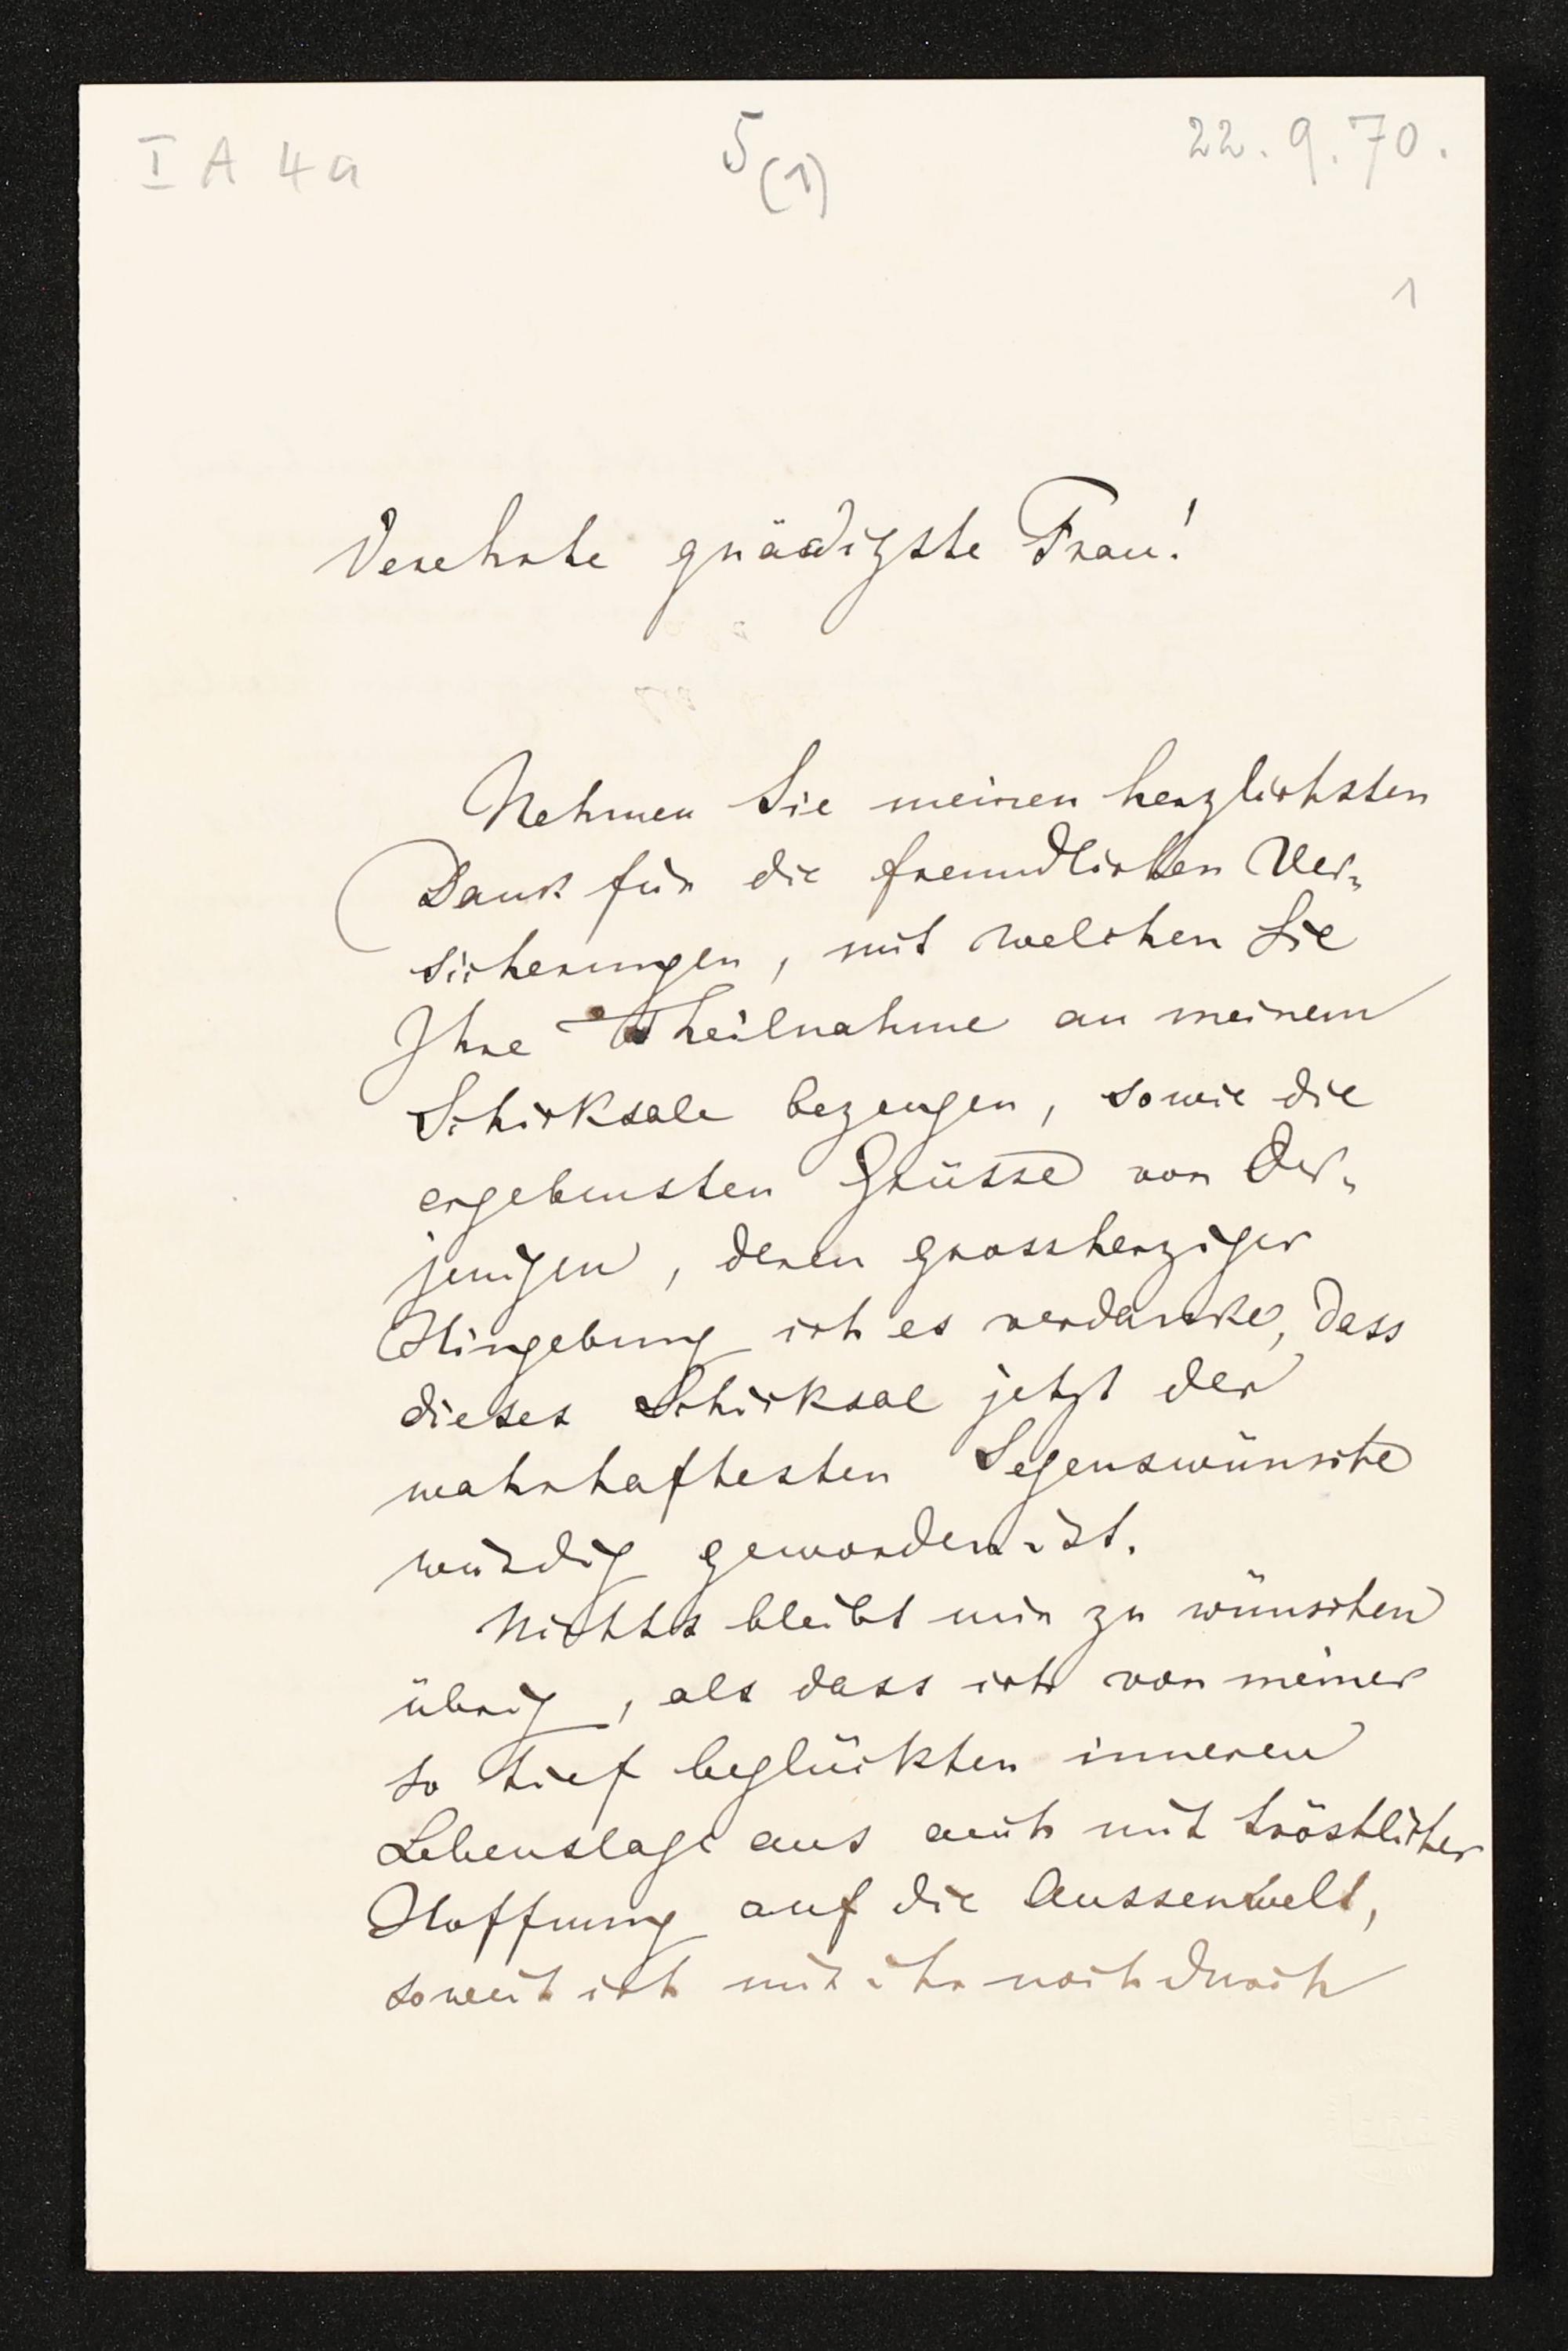 I A 4a
5
(1)
22.9.70.
1
Verehrte gnädigste Frau!
Nehmen Sie meinen herzlichsten
Dank für die freundlichen Ver-
sicherungen, mit welchen Sie
Ihre Theilnahme an meinem
Schicksale bezeugen, sowie die
ergebensten Grüsse von Der-
jenigen, deren grossherziger
Hingebung ich es verdanke, dass
dieses Schicksal jetzt der
wahrhaftesten Segenswünsche
würdig geworden ist.
Nichts bleibt mir zu wünschen
übrig, als dass ich von meiner
so tief beglückten inneren
Lebenslage aus auch mit tröstlicher
Hoffnung auf die Aussenwelt,
soweit ich mit ihr noch durch